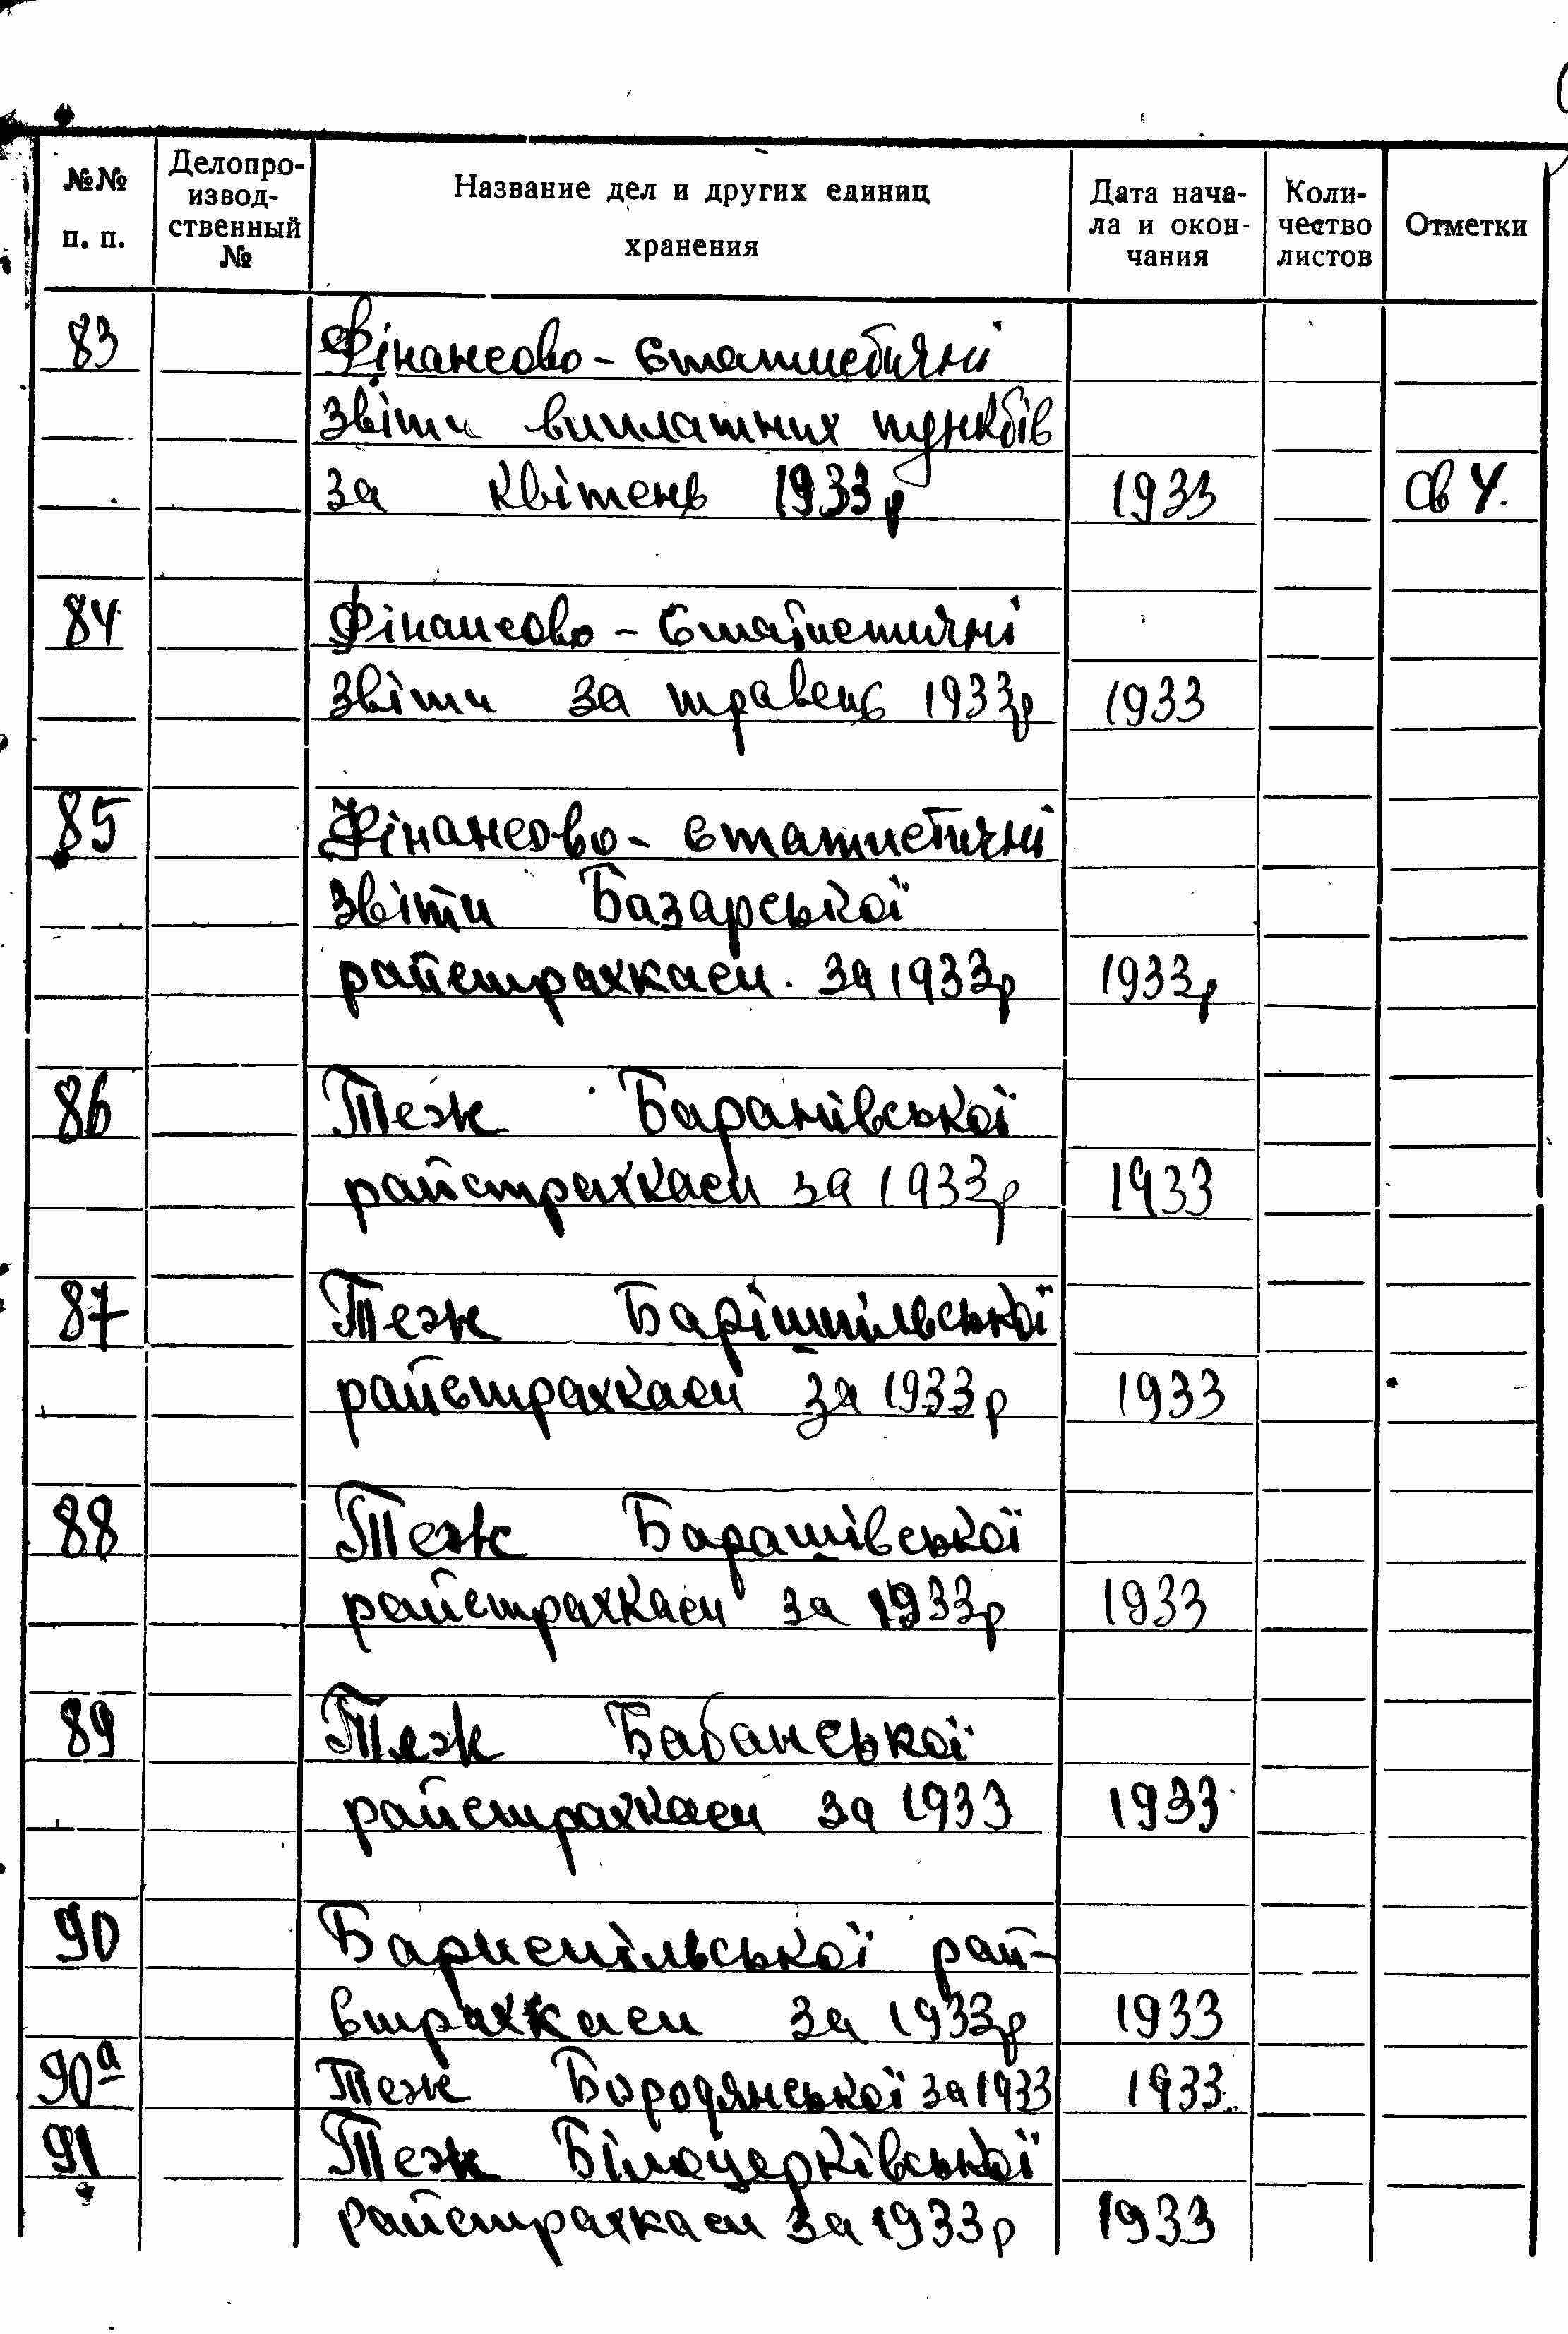 №№ п. п.
Делопро-
извод-
ственный
№
Название дел и других единиц
хранения
Дата нача-
ла и окон-
чания
Коли-
чество
листов
Отметки
83 Фінансово - статистичні
звіти виплатних пунктів
за квітень 1933 р 1933 св 4.
84 Фінансово - статистичні
звіти за травень 1933р 1933
85 Фінансово - статистичні
звіти Базарської
райстрахкаси. за 1933р 1933р
86 Теж Баранівської
райстрахкаси за 1933р 1933
87 Теж Барішпільської
райстрахкаси за 1933р 1933
88 Теж Барашівської
райстрахкаси за 1933р 1933
89 Теж Бабанської
райстрахкаси за 1933 1933
90 Бариспільської рай-
страхкаси за 1933р 1933
90а Теж Бородянської за 1933 1933
91 Теж Білоцерківської
райстрахкаси за 1933р 1933